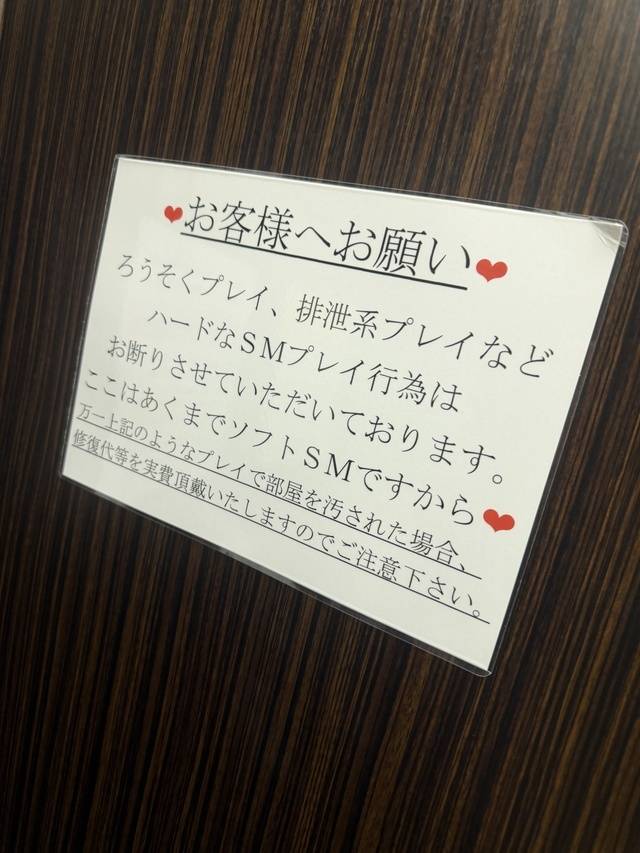 ❤お客様へお願い❤
ろうそくプレイ、排泄系プレイなど
ハードなSMプレイ行為は
お断りさせていただいております。
ここはあくまでソフトSMですから❤
万一上記のようなプレイで部屋を汚された場合、
修復代等を実費頂戴いたしますのでご注意下さい。